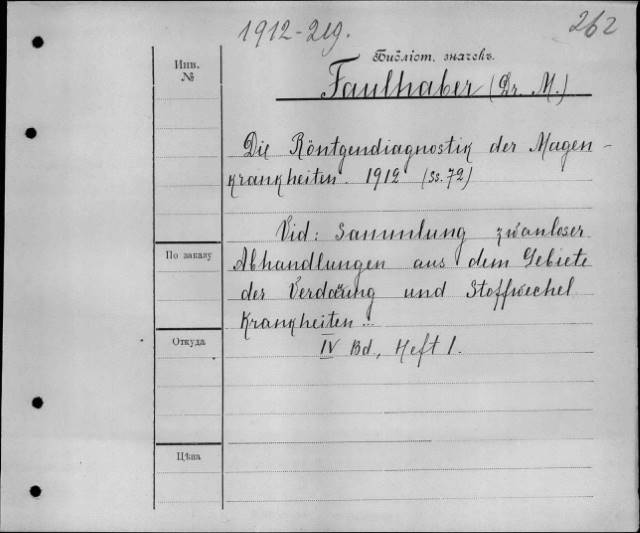 1912-219.
262
Библіот. значекъ.
Инв.
№
Faulhaber (Dr. M.)
Die Röntgendiagnostik der Magen-
krankheiten. 1912 (ss. 72)
Vid: Sammlung zwanloser
Abhandlungen aus dem Gebiete
По заказу
der Verdaüng und Stoffwechel
Krankheiten...
Откуда
IV Bd, Heft 1.
Цѣна